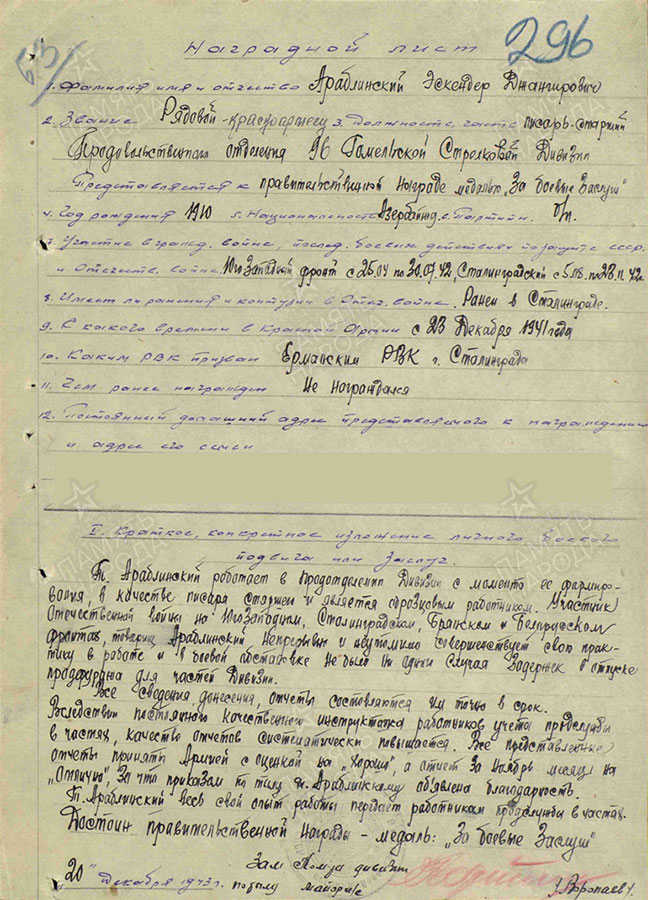 63/
296
Наградной лист
1. Фамилия имя и отчество Араблинский Эскендер Джангирович
2. Звание Рядовой-красноармеец 3. Должность, часть писарь-старший
Продовольственного отделения 96 Гомельской Стрелковой Дивизии
Представляется к правительственной награде медалью „За боевые Заслуги"
4. Год рождения 1910 5. Национальность Азербайд. 6. Партийн. б/п.
7. Участие в гражд. войне, послед. боевых действиях по защите СССР
и Отечеств. войне Юго Западный фронт с 25.04 по 30.07.42, Сталинградский с 5.08. по 28.11.42г.
8. Имеет ли ранения и контузии в Отеч. войне. Ранен в Сталинграде.
9. С какого времени в Красной Армии с 23 Декабря 1941 года
10. Каким РВК призван Ерманским РВК г. Сталинграда
11. Чем ранее награжден Не Награждался
12. Постоянный домашний адрес представляемого к награждению
и адрес его семьи
I. Краткое, конкретное изложение личного боевого
подвига или заслуг.
Т. Араблинский работает в Продотделении Дивизии с момента ее формиро-
вания, в качестве писаря старшего и является образцовым работником. Участник
Отечественной войны на Юго Западном, Сталинградском, Брянском и Белорусском
фронтах, товарищ Араблинский Непрерывно и неутомимо совершенствует свою прак-
тику в работе и в боевой обстановке Не было Ни одного Случая Задержек в отпуске
продфуража для частей Дивизии.
Все сведения, донесения, отчеты составляются им точно в срок.
Вследствии постоянного качественного инструктажа работников учета продслужбы
в частях, качество отчетов систематически повышается. Все представленные
отчеты приняты Армией с оценкой на „Хорошо", а отчет за Ноябрь месяц на
„Отлично", За что приказом по тылу т. Араблинскому об'явлена благодарность.
Т. Араблинский весь свой опыт работы передает работникам продслужбы в частях.
Достоин правительственной Награды - медаль: „За боевые Заслуги"
Зам Ком-ра дивизии
„20" Декабря 1943 г. по тылу майор и/с /Воропаев/.
ПАМЯТЬ НАРОДА